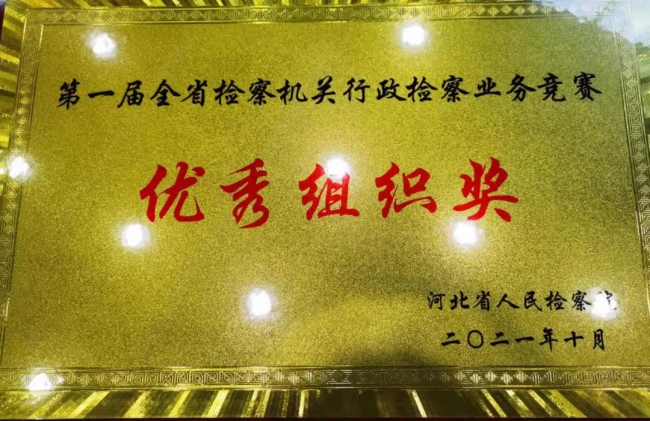 第一届全省检察机关行政检察业务竞赛
优秀组织奖
河北省人民检察院
二〇二一年十月